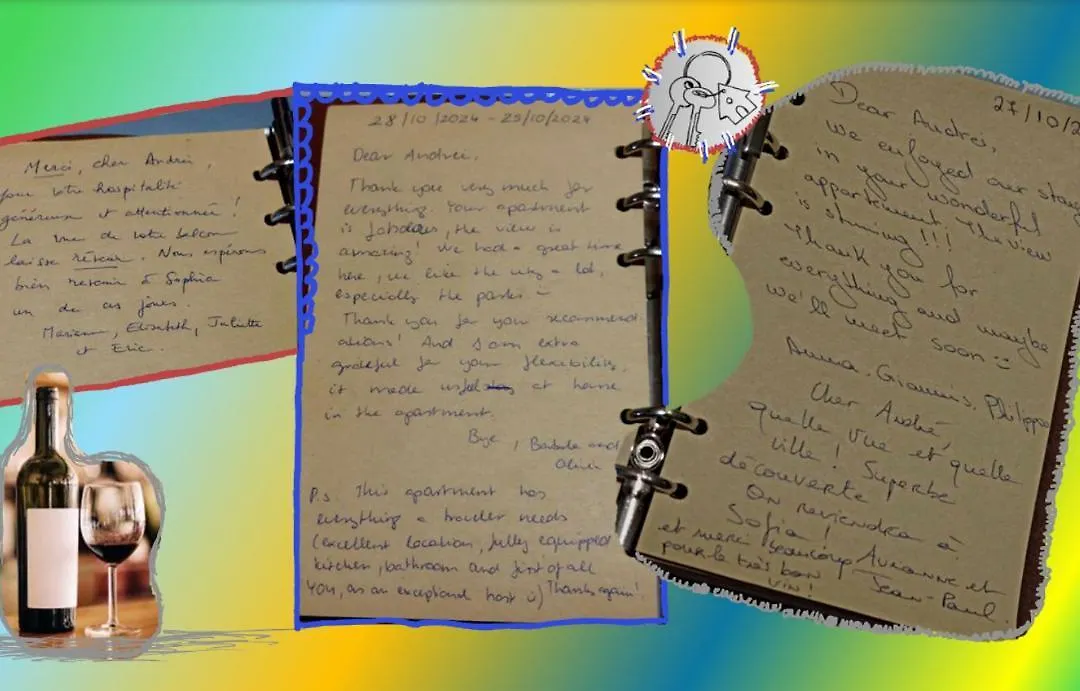 Merci, cher Andrei,
pour votre hospitalité
généreuse et attentionnée !
La vue de votre balcon
laisse rêveur. Nous espérons
bien revenir à Sophia
un de ces jours.
Elisabeth, Juliette
et Eric.
28/10/2024 - 29/10/2024
Dear Andrei,
Thank you very much for
everything. Your apartment
is fabulous, the view is
amazing! We had a great time
here, we like the city a lot,
especially the parks
Thank you for your recommend-
ations! And I am extra
grateful for your flexibility,
it made us feel at home
in the apartment.
Bye, and
P.s. This apartment has
everything a traveler needs
(excellent location, fully equipped
kitchen, bathroom and first of all
YOU, as an exceptional host :) Thanks again!
27/10/2
Dear Andrei,
We enjoyed our stay
in your wonderful
appartement. The view
is stunning!!!
Thank you for
everything and maybe
we'll meet soon :)
Anna, Giannis, Philippe
Cher André,
quelle vue et quelle
ville ! Superbe
découverte
On reviendra à
Sofia !
et merci beaucoup
pour le très bon
vin !
et
Jean-Paul